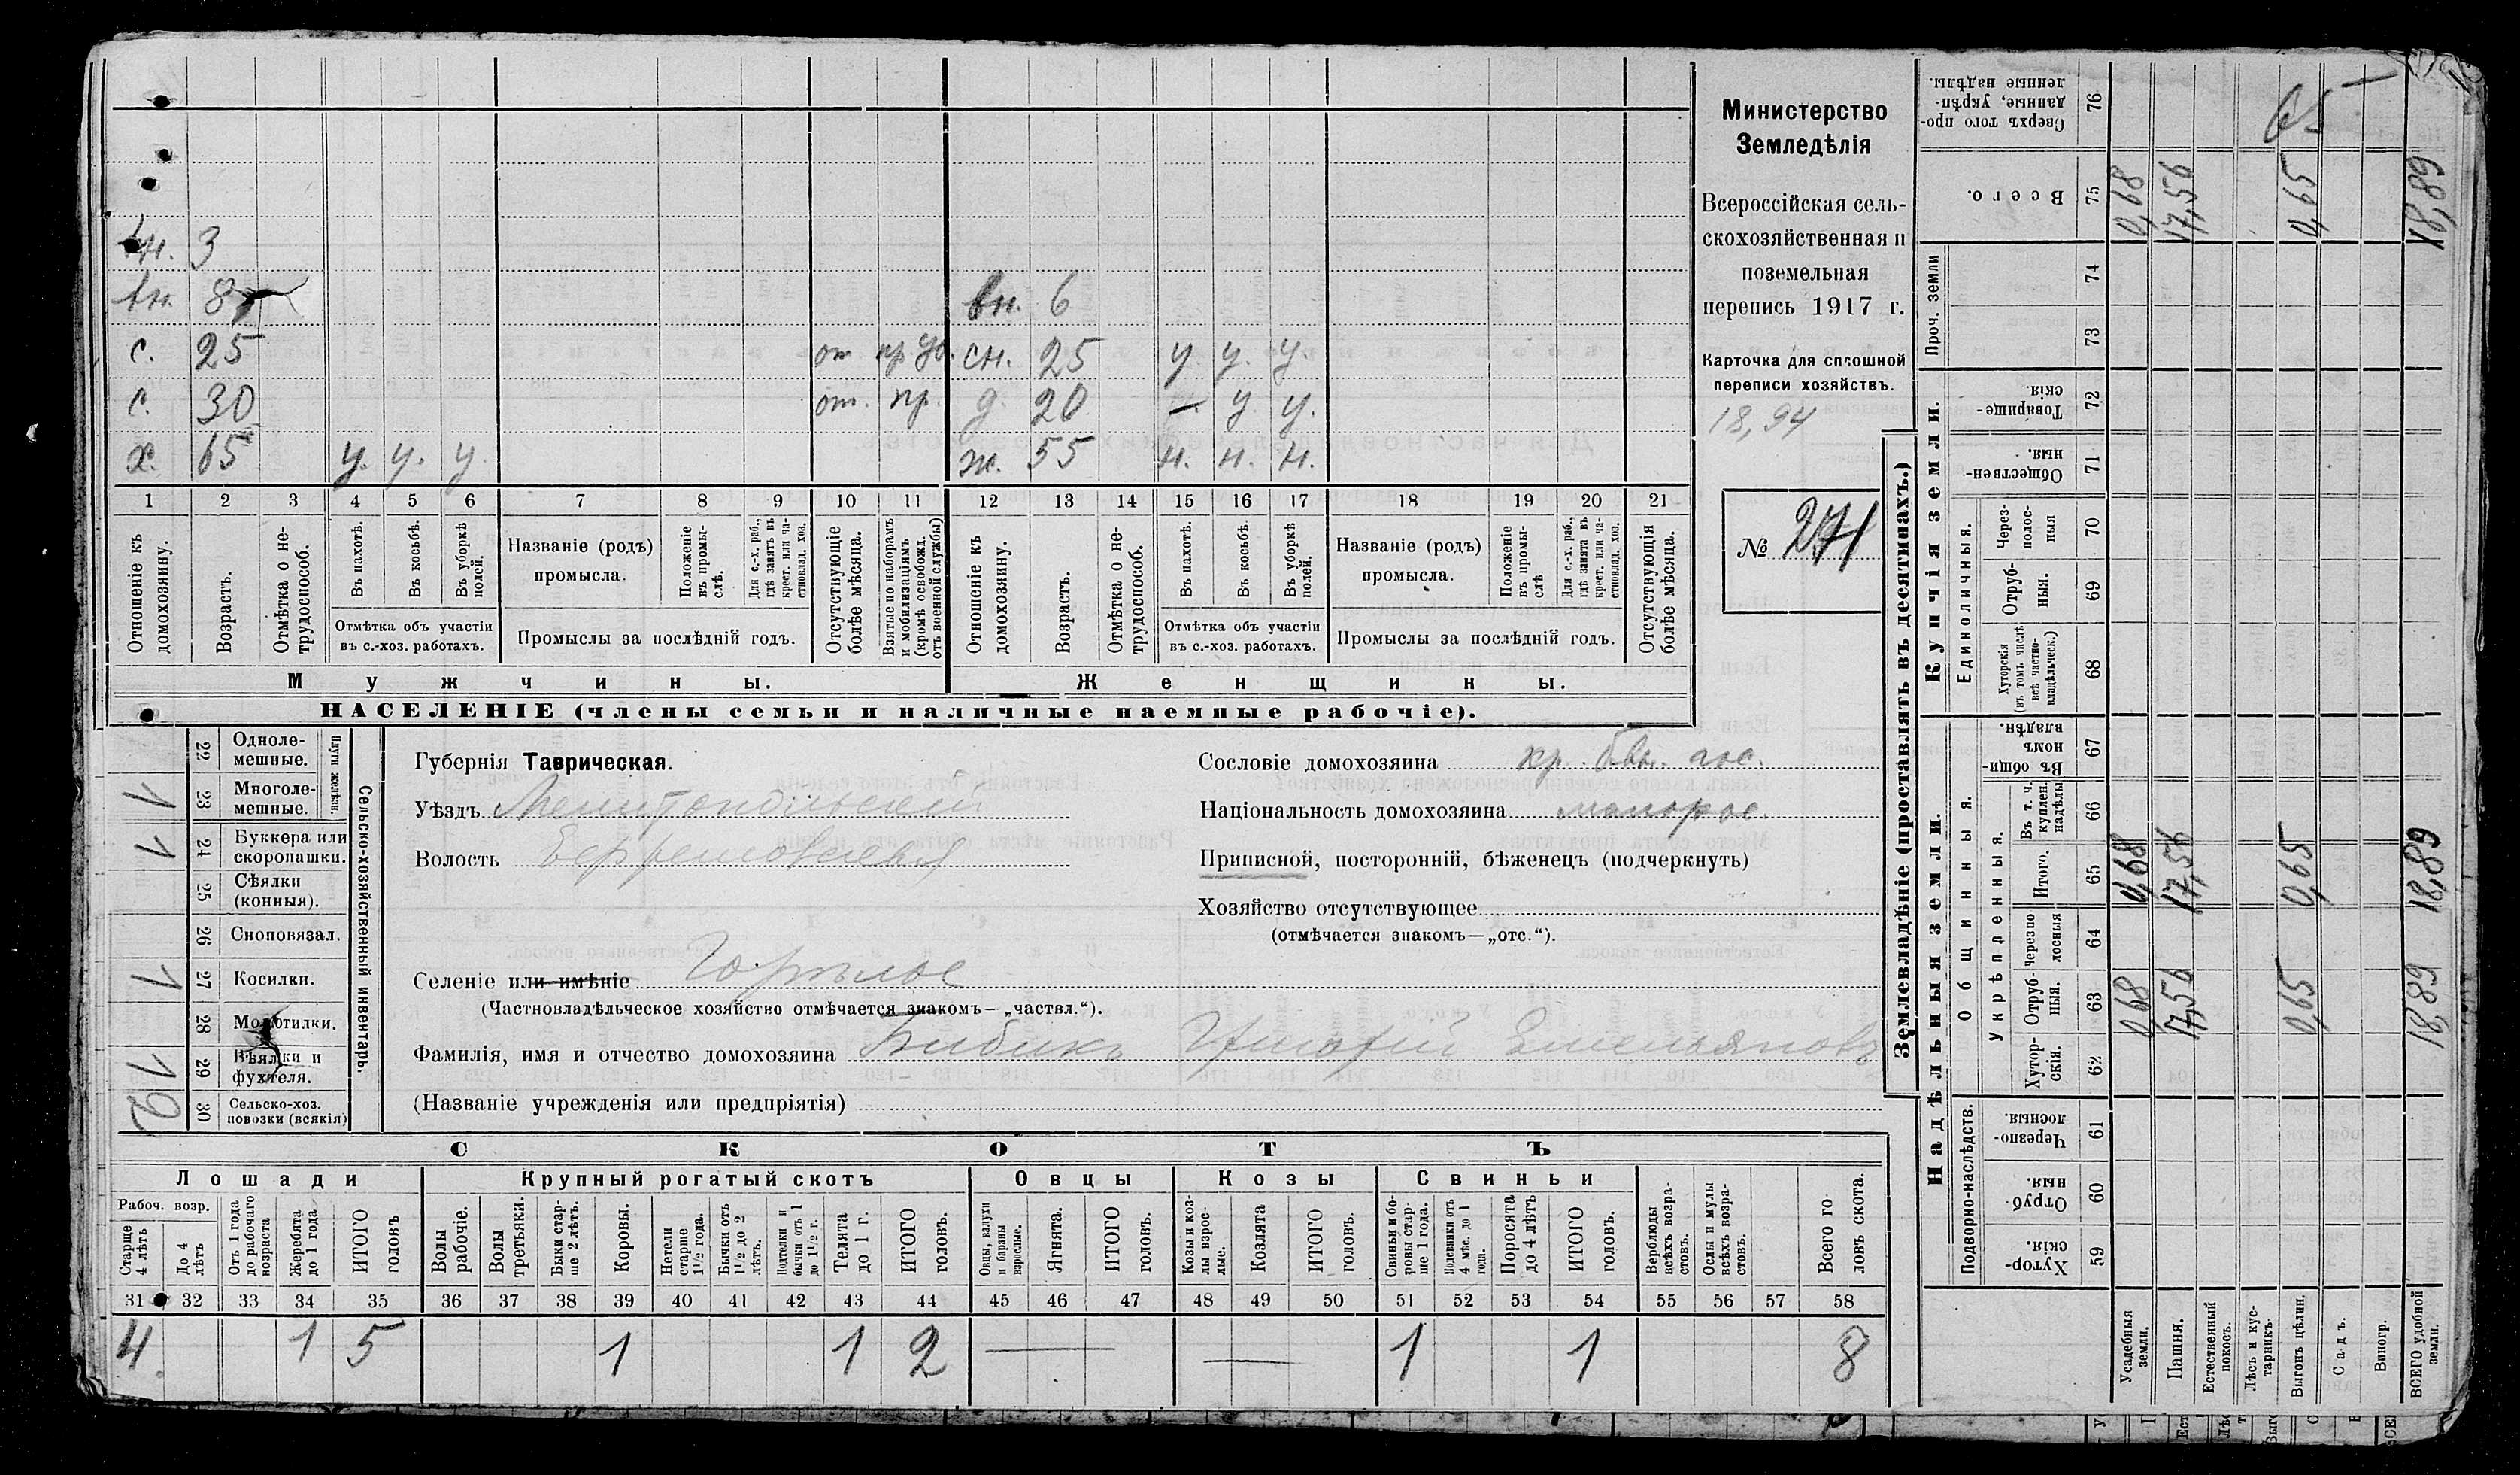 Министерство
Земледѣлія
Всероссійская сель-
скохозяйственная и
поземельная
перепись 1917 г.
Карточка для сплошной
переписи хозяйствъ.
18,94
№ 271
вн. 3
вн. 8 вн. 6
с. 25 от пр сн. 25 у. у. у.
с. 30 от. пр. д. 20 — у у.
х. 65 у. у. у. ж. 55 н. н. н.
1 2 3 4 5 6 7 8 9 10 11 12 13 14 15 16 17 18 19 20 21
Отношеніе къ домохозяину.
Возрастъ.
Отмѣтка о не-трудоспособ.
Въ пахотѣ.
Въ косьбѣ.
Въ уборкѣ полей.
Отмѣтка объ участіи въ с.-хоз. работахъ.
Названіе (родъ) промысла.
Положеніе въ промы-слѣ.
Для с.-х. раб., гдѣ занятъ въ крест. или ча-стновлад. хоз.
Промыслы за послѣдній годъ.
Отсутствующіе болѣе мѣсяца.
Взятые по наборамъ и мобилизаціямъ (кромѣ освобожд. отъ военной службы)
Отношеніе къ домохозяину.
Возрастъ.
Отмѣтка о не-трудоспособ.
Въ пахотѣ.
Въ косьбѣ.
Въ уборкѣ полей.
Отмѣтка объ участіи въ с.-хоз. работахъ.
Названіе (родъ) промысла.
Положеніе въ промы-слѣ
Для с.-х. раб., гдѣ занята въ крест. или ча-стновлад. хоз.
Промыслы за послѣдній годъ.
Отсутствующія болѣе мѣсяца.
Мужчины. Женщины.
НАСЕЛЕНІЕ (члены семьи и наличные наемные рабочіе).
Сельско-хозяйственный инвентарь.
Плуги желѣзн.
22 Одноле-мешные.
1 23 Многоле-мешные.
1 24 Буккера или скоропашки.
25 Сѣялки (конныя).
26 Сноповязал.
1 27 Косилки.
28 Молотилки.
1 29 Вѣялки и фухтеля.
2 30 Сельско-хоз. повозки (всякія)
Губернія Таврическая.
Уѣздъ Мелитопольскій
Волость Ефремовская
Сословіе домохозяина кр. бвш. гос.
Національность домохозяина малорос.
Приписной, посторонній, бѣженецъ (подчеркнуть)
Хозяйство отсутствующее
(отмѣчается знакомъ—„отс.“).
Селеніе или имѣніе Горѣлое
(Частновладѣльческое хозяйство отмѣчается знакомъ—„частвл.“).
Фамилія, имя и отчество домохозяина Бибикъ Емельяновъ
(Названіе учрежденія или предпріятія)
СКОТЪ
Лошади Крупный рогатый скотъ Овцы Козы Свиньи
Рабоч. возр.
Старше 4 лѣтъ
До 4 лѣтъ
Отъ 1 года до рабочаго возраста
Жеребята до 1 года
ИТОГО головъ
Волы рабочіе.
Волы третьяки.
Быки стар-ше 2 лѣтъ.
Коровы.
Нетели старше 1½ года.
Бычки отъ 1½ до 2 лѣтъ.
Нетелки и бычки отъ 1 до 1½ г.
Телята до 1 г.
ИТОГО головъ.
Овцы, валухи и бараны взрослые.
Ягнята.
ИТОГО головъ.
Козы и коз-лы взрос-лые.
Козлята
ИТОГО головъ.
Свиньи и бо-ровы стар-ше 1 года.
Подсвинки отъ 4 мѣс. до 1 года.
Поросята до 4 лѣтъ
ИТОГО головъ.
Верблюды всѣхъ возра-стовъ.
Ослы и мулы всѣхъ возра-стовъ.
Всего го-ловъ скота.
31 32 33 34 35 36 37 38 39 40 41 42 43 44 45 46 47 48 49 50 51 52 53 54 55 56 57 58
4 1 5 1 1 2 — — 1 1 8
Землевладѣніе (проставлять въ десятинахъ.)
Надѣльныя земли. Купчія земли. Проч. земли
Подворно-наслѣдств. Общинныя. Укрѣпленныя. Единоличныя.
Сверхъ того про-данные, укрѣп-ленные надѣлы. 76 65 —
Всего. 75 0,68 17,56 0,65 18,89
74
73
Товарище-скія. 72
Обществен-ныя. 71
Через-полос-ныя 70
Отруб-ныя. 69
Хуторскія (въ томъ числѣ всѣ частно-владѣльческ.) 68
Въ общи-номъ владѣн. 67
Въ т. ч. куплен. надѣлы 66
Итого. 65 0,68 17,56 0,65 18,89
Черезпо лосныя 64
Отруб-ныя. 63 0,68 17,56 0,65 18,89
Хутор-скія. 62
Черезпо-лосныя 61
Отруб-ныя. 60
Хутор-скія. 59
Усадебныя земли.
Пашня.
Естественный покосъ.
Лѣсъ и кус-тарникъ.
Выгонъ цѣлин.
Садъ.
Виногр.
ВСЕГО удобной земли.